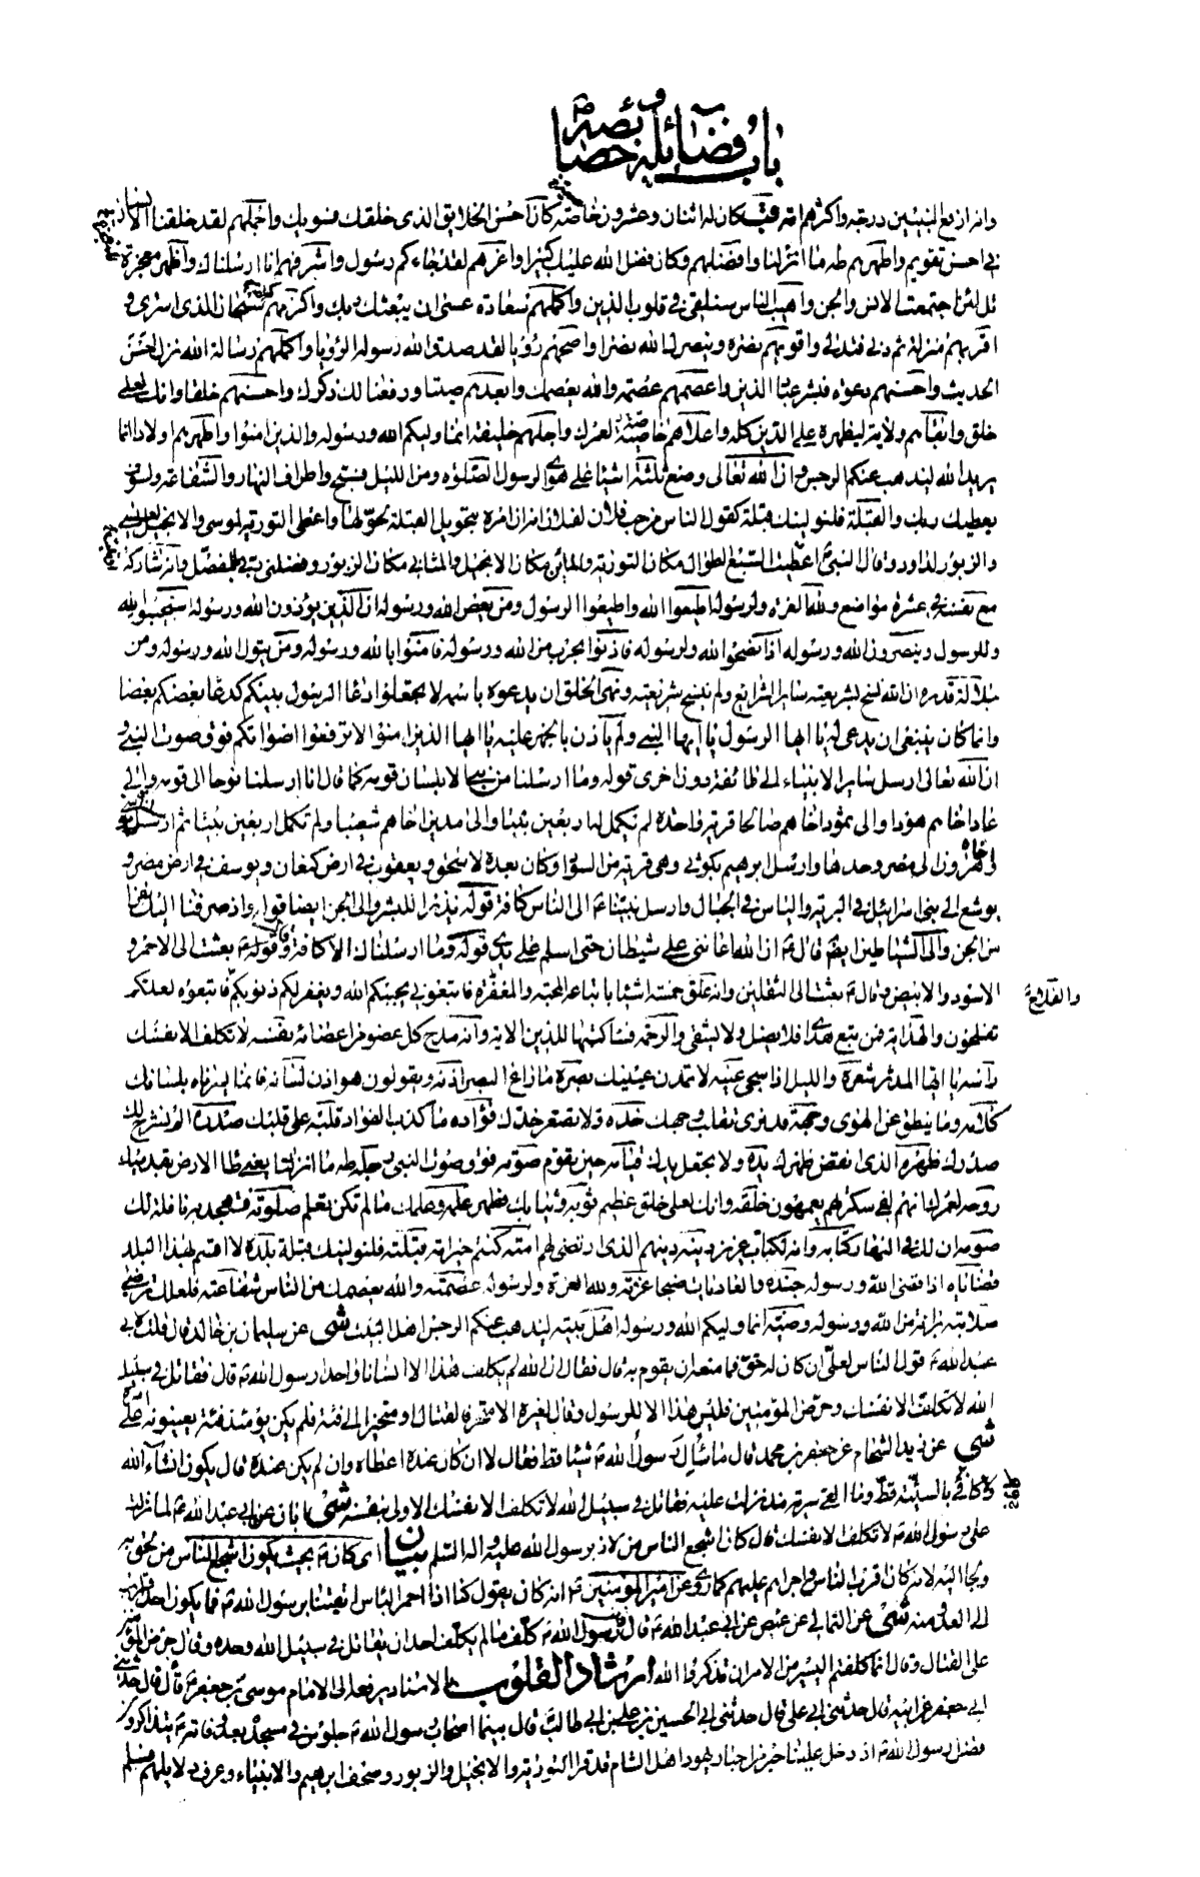 باب فضائله وخصائصه ص
وانه ارفع النبيين درجة واكثرهم امة قب كان له اثنان وعشرون خاصة كان احسن الخلايق الذى خلقك فسويك واجملهم لقد خلقنا الانسان
فى احسن تقويم واطهرهم طه ما انزلنا وافضلهم وكان فضل الله عليك كبيرا واعزهم لقد جاءكم رسول واشرفهم انا ارسلناك واظهر معجزة
قل لئن اجتمعت الانس والجن واهيب الناس سنلقى فى قلوب الذين واكملهم سعادة عسى ان يبعثك ربك واكرمهم سبحان الذى اسرى و
اقربهم منزلة ثم دنى فتدلى واقويهم نصرة وينصرك الله نصرا واصحهم رؤيا لقد صدق الله رسوله الرؤيا واكملهم رسالة الله نزل احسن
الحديث واحسنهم دعوة فبشر عباد الذين واعصمهم عصمة والله يعصمك وابعدهم صيتا ورفعنا لك ذكرك واحسنهم خلقا وانك لعلى
خلق وابقاهم ولاية ليظهره على الدين كله واعلاهم خاصية لعمرك واجلهم خليفة انما وليكم الله ورسوله والذين امنوا واطهرهم اولادا انما
يريد الله ليذهب عنكم الرجس وان الله تعالى وضع ثلثة اشياء على هوى الرسول الصلوة ومن الليل فسبح واطراف النهار والشفاعة ولسوف
يعطيك ربك والقبلة فلنولينك قبلة كقول الناس من حب فلان لفلان انه امره بتحويل القبلة نحو لهذا واعطى التورية لموسى والانجيل لعيسى
والزبور لداود وقال النبى اعطيت السبع الطوال مكان التورية والمائين مكان الانجيل والمثانى مكان الزبور وفضلنى ربى بالمفصل وانه شاركه
مع نفسه فى عشرة مواضع ولله العزة ولرسوله اطيعوا الله واطيعوا الرسول ومن يعص الله ورسوله ان الذين يؤذون الله ورسوله استجيبوا لله
وللرسول وينصرون الله ورسوله اذا نصحوا لله ولرسوله فاذنوا بحرب من الله ورسوله فامنوا بالله ورسوله ومن يتول الله ورسوله ومن
جلالة قدره ان الله نسخ بشريعته ساير الشرايع ولم ينسخ شريعته ونهى الخلق ان يدعوه باسمه لا تجعلوا دعاء الرسول بينكم كدعاء بعضكم بعضا
وانما كان ينبغى ان يدعى له يا ايها الرسول يا ايها النبى ولم ياذن بالجهر عليه يا ايها الذين امنوا لا ترفعوا اصواتكم فوق صوت النبى و
ان الله تعالى ارسل ساير الانبياء الى طائفة دون اخرى قوله وما ارسلنا من رسول الا بلسان قومه كما قال انا ارسلنا نوحا الى قومه والى
عاد اخاهم هودا والى ثمود اخاهم صالحا قرية واحدة لم تكمل لها اربعين بيتا والى مدين اخاهم شعيبا ولم تكمل اربعين بيتا ثم ارسلنا موسى
واخاه هرون الى مصر وحدها وارسل ابرهيم بكوثى وهى قرية من السواد وكان بعده لاسحق ويعقوب فى ارض كنعان ويوسف فى ارض مصر و
يوشع الى بنى اسرائيل فى البرية والياس فى الجبال وارسل نبينا الى الناس كافة قوله نذيرا للبشر والى الجن ايضا قوله واذ صرفنا اليك نفرا
من الجن والى الشياطين ايضا قال ان الله اعاننى على شيطان حتى اسلم على يدى قوله وما ارسلناك الا كافة وقوله بعثت الى الاحمر و
الاسود والابيض وقال بعثت الى الثقلين وانه علق خمسة اشياء باتباعه المحبة والمغفرة فاتبعونى يحببكم الله ويغفر لكم ذنوبكم فاتبعوه لعلكم
والفلاح
تفلحون والهداية فمن تبع هداى فلا يضل ولا يشقى والرحمة فساكتبها للذين الاية وانه مدح كل عضو من اعضائه نفسه لا تكلف الا نفسك
راسه يا ايها المدثر شعره والليل اذا سجى عينيه لا تمدن عينيك بصره ما زاغ البصر اذنه ويقولون هو اذن لسانه فانما يسرناه بلسانك
كلامه وما ينطق عن الهوى وجهه قد نرى تقلب وجهك خده ولا تصعر خدك فؤاده ما كذب الفواد قلبه على قلبك صدره الم نشرح لك
صدرك ظهره الذى انقض ظهرك يده ولا تجعل يدك قيامه حين يقوم صوته فوق صوت النبى رجله طه ما انزلنا يعنى طا الارض بقدميك
روحه لعمرك انهم لفى سكرتهم يعمهون خلقه وانك لعلى خلق عظيم ثوبه وثيابك فطهر علمه وعلمك ما لم تكن تعلم صلوته فتهجد به نافلة لك
صومه ان لك فى النهار كتابه وانه لكتاب عزيز دينه دينهم الذى ارتضى لهم امته كنتم خير امة قبلته فلنولينك قبلة بلده لا اقسم بهذا البلد
قضاياه اذا قضى الله ورسوله جنده والعاديات ضبحا عزته ولله العزة ولرسوله عصمته والله يعصمك من الناس شفاعته فلعلك ترضى
صلابته براءة من الله ورسوله وصيته انما وليكم الله ورسوله اهل بيته ليذهب عنكم الرجس اهل البيت شى عن سليمان بن خالد قال قلت لابى
عبد الله قول الناس لعلى ان كان له حق فما منعه ان يقوم به قال فقال ان الله لم يكلف هذا الا انسانا واحدا رسول الله قال فقاتل فى سبيل
الله لا تكلف الا نفسك وحرض المؤمنين فليس هذا الا للرسول وقال لغيره الا متحرفا لقتال او متحيزا الى فئة فلم يكن يومئذ فئة يعينونه على امره
شى عن زيد الشحام عن جعفر بن محمد قال ما سئل رسول الله شيئا قط فقال لا ان كان عنده اعطاه وان لم يكن عنده قال يكون انشاء الله
ولا كافى بالسيئة قط وما لقى سرية مذ نزلت عليه فقاتل فى سبيل الله لا تكلف الا نفسك الا ولى بنفسه شى ابان عن ابى عبد الله لما نزلت
على رسول الله لا تكلف الا نفسك قال كان اشجع الناس من لاذ برسول الله عليه واله السلم بيان اى كان بحيث يكون اشجع الناس من لحق به
ولجا اليه لانه كان اقرب الناس واجراهم عليهم كما روى عن امير المؤمنين انه كان يقول كنا اذا احمر الباس اتقينا برسول الله فما يكون احد اقرب
الى العدو منه شى عن الثمالى عن عيص عن ابى عبد الله قال رسول الله كلف ما لم يكلف احد ان يقاتل فى سبيل الله وحده وقال حرض المؤمنين
على القتال وقال انما كلفتم اليسير من الامر ان تذكروا الله ارشاد القلوب بالاسناد يرفعه الى الامام موسى بن جعفر قال قال حدثنى
ابى جعفر عن ابيه قال حدثنى ابى على قال حدثنى ابى الحسين بن على بن ابى طالب قال بينما اصحاب رسول الله جلوس فى مسجده بعد وفاته يتذاكرون
فضل رسول الله اذ دخل علينا حبر من احبار يهود اهل الشام قد قرا التورية والانجيل والزبور وصحف ابرهيم والانبياء وعرف دلايلهم فسلم